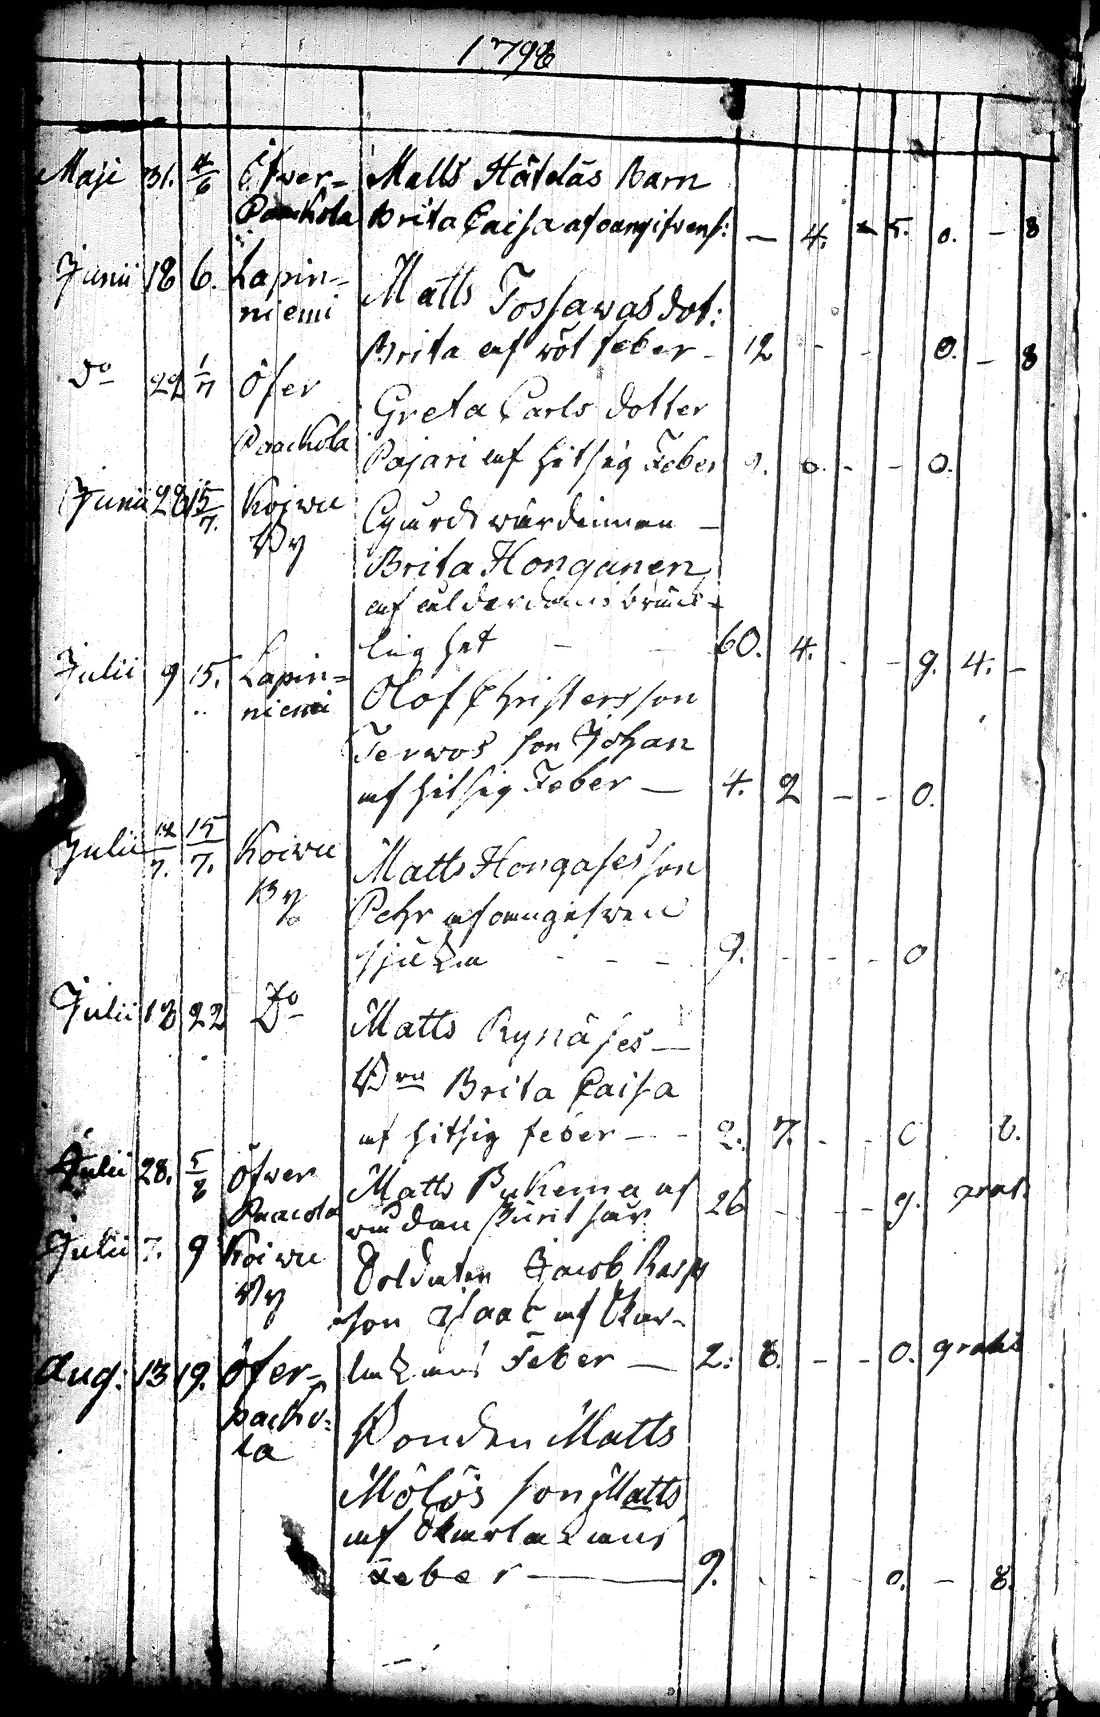 1798
Maji 31. 4/6 Öfwer= Matts Häteläs Barn
Paackola Brita Caisa af oangifven s: — 4. 5. 0. — 8
Junii 18 6. Lapin= Matts Tossawas dot:
niemi
Brita af röt feber - 12 - - 0. — 8
Do 22 1/7 Öfer Greta Carls dotter
Paackola Pajari af hitsig Feber 9. 0. - - 0.
Junii 28 15/7. Koiwu Gjurdswärdinnan —
By Brita Honganen
af ålderdoms bräck=
lighet - - 60. 4. - - 9. 4. —
Julii 9 15. Lapin= Olof Christersson
niemi
Terwos son Johan
af hitsig Feber — 4. 2 — - 0.
Julii 12/7. 15/7. Koiwu Matts Hongases son
By Pehr af oangifwen
sjukdom - - - 9. - - - 0
Julii 18 22 Do Matts Rynäses —
Brn Brita Caisa
af hitsig feber - - 2. 7. - - 0 8.
Julii 28. 5/8 Öfwer Matts Pukema af 26 - - - 9. grat.
Paacola
Julii 7. 9 Koiwu Soldaten Jacob Rasks
By son Isaac af Skar=
lakans Feber — 2. 8. - - 0. gratis
Aug: 13 19. Öfer=
packo= Bonden Matts
la
Mölös son Matts
af Skarlakans
Feber — 9. - - - 0. — 8.